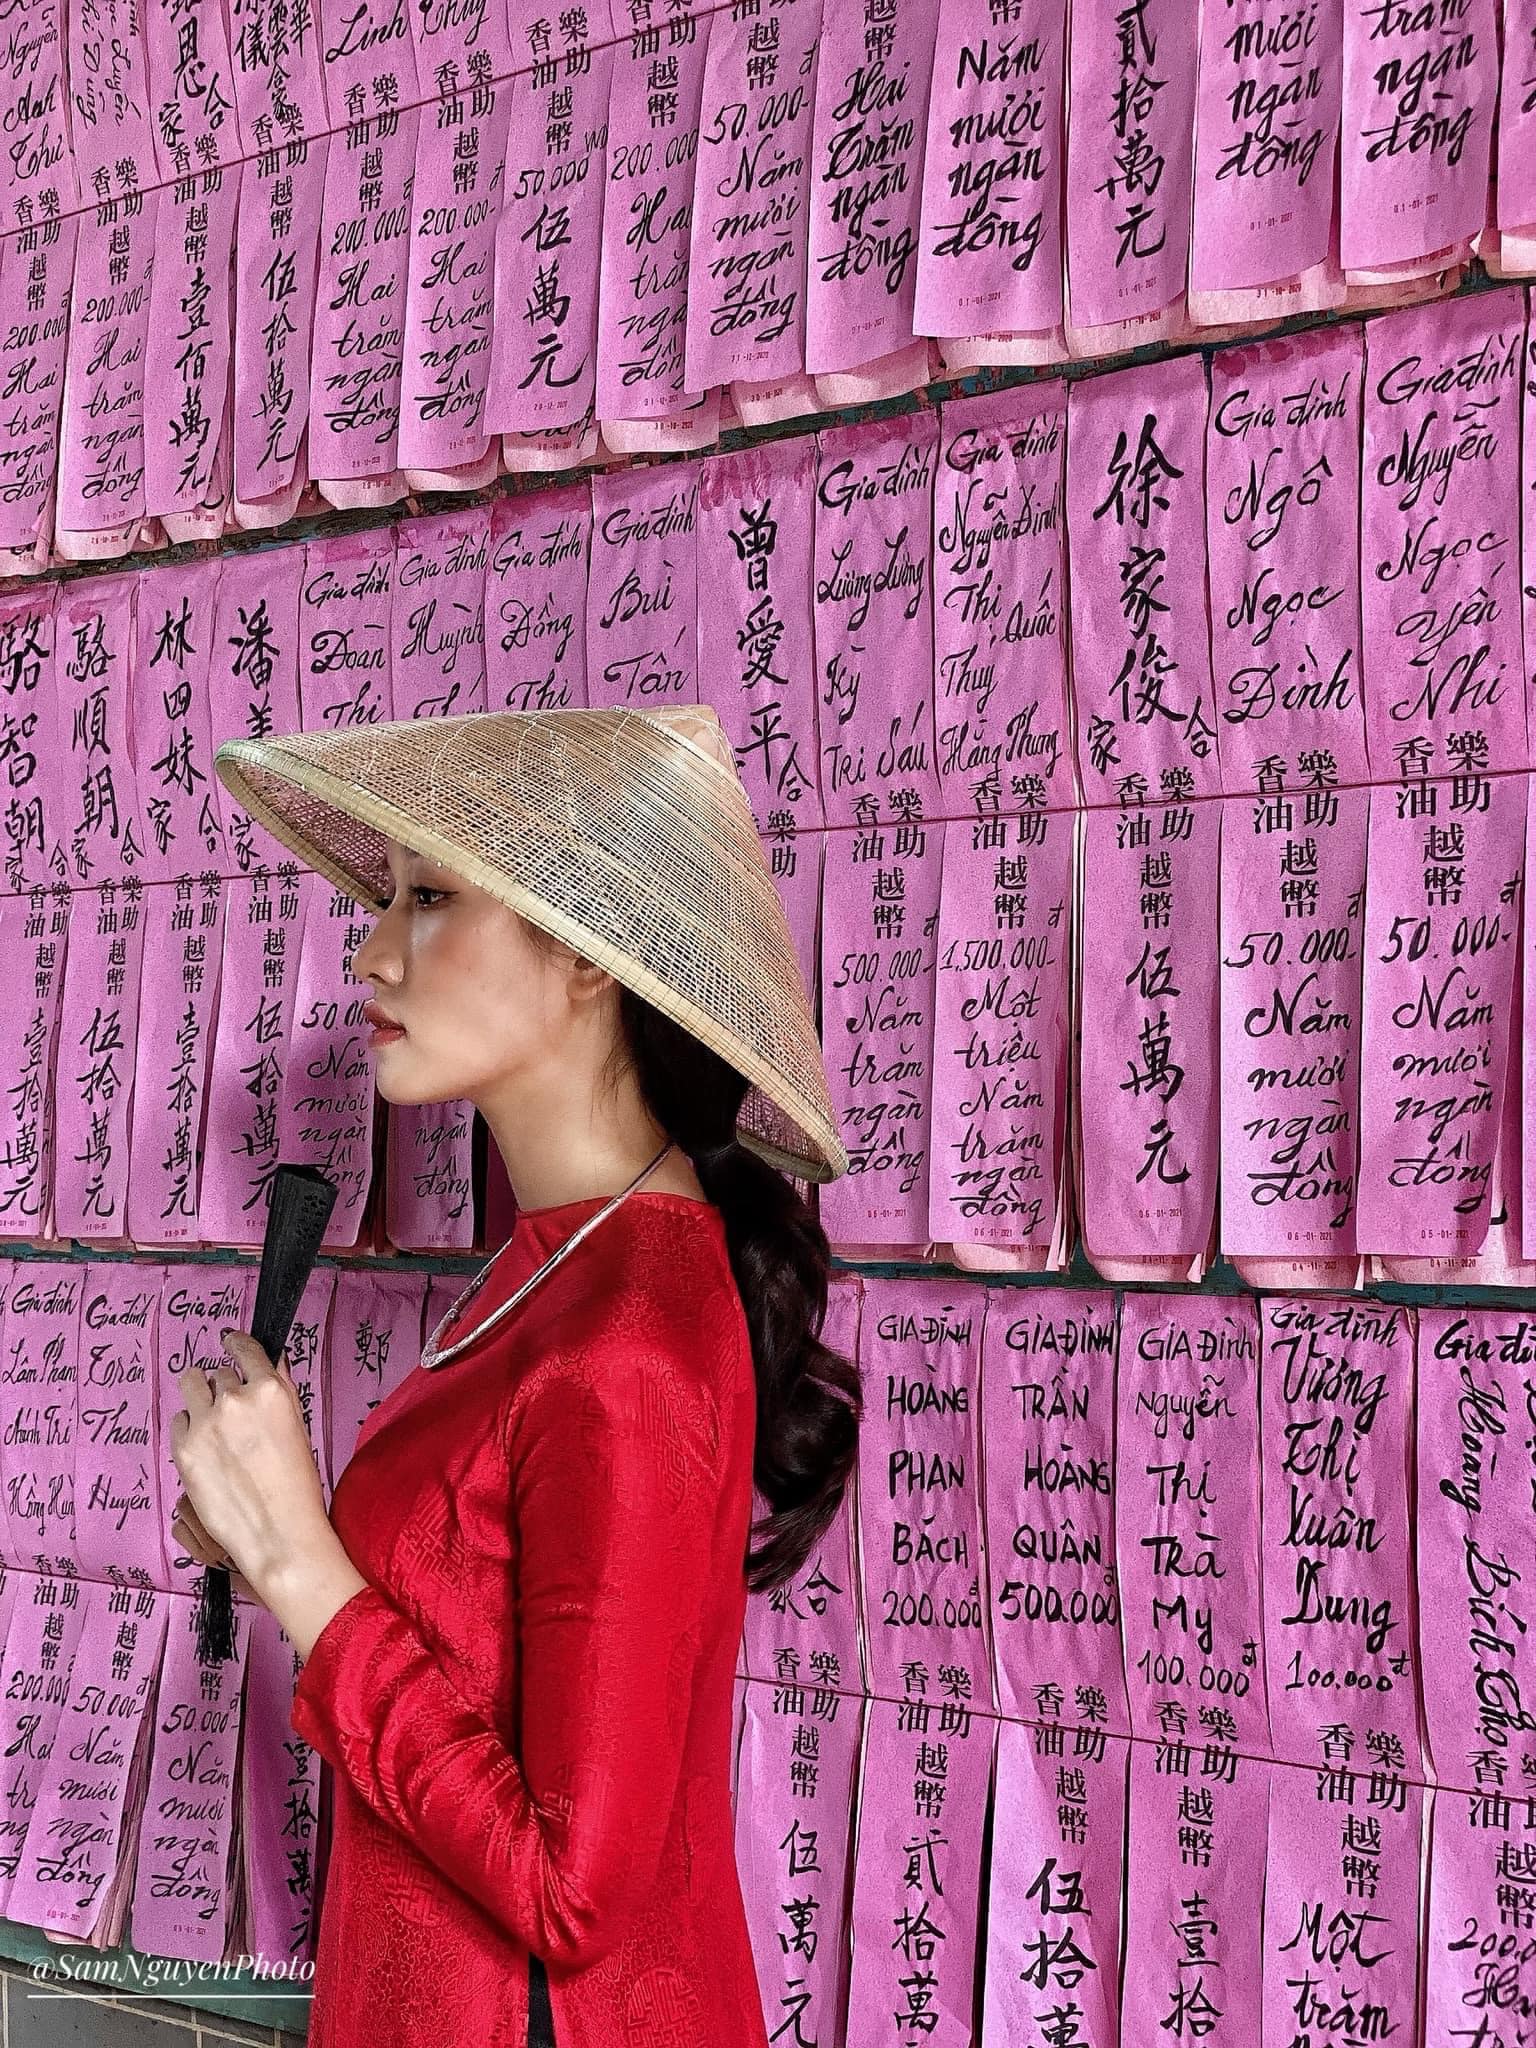 Nguyễn
Anh
Thư
恩
合
家
儀
Linh
Thuy
香油
樂助
越幣
200.000-
Hai
trăm
ngàn
đồng
香油
樂助
越幣
200.000-
Hai
trăm
ngàn
đồng
香油
樂助
越幣
壹佰萬元
香油
樂助
越幣
伍拾萬元
香油
樂助
越幣
200.000-
Hai
trăm
ngàn
đồng
香油
樂助
越幣
200.000-
Hai
trăm
ngàn
đồng
香油
樂助
越幣
50.000
伍萬元
越幣
200.000
Hai
trăm
ngàn
đồng
越幣
50.000-
Năm
mươi
ngàn
đồng
越幣
Hai
Trăm
ngàn
đồng
幣
Năm
mươi
ngàn
đồng
貳拾萬元
mươi
ngàn
đồng
trăm
ngàn
đồng
駱智朝
合家
駱順朝
合家
林四妹
合家
潘美
家
Gia đình
Đoàn
Thị
Gia đình
Huỳnh
Gia đình
Đồng
Thị
Gia đình
Bùi
Tấn
曾愛平
合
Gia đình
Lương Lường
Kỳ
Tri Sáu
Gia đình
Nguyễn Đình
Thị Quốc
Thuý
Hằng Phụng
徐家俊
合家
Gia đình
Ngô
Ngọc
Đình
Gia đình
Nguyễn
Ngọc
Yến
Nhi
香油
樂助
越幣
壹拾萬元
香油
樂助
越幣
伍拾萬元
香油
樂助
越幣
壹拾萬元
香油
樂助
越幣
伍拾萬元
50.00
Năm
mươi
ngàn
đồng
ngàn
đồng
樂助
香油
樂助
越幣
500.000-
Năm
trăm
ngàn
đồng
香油
樂助
越幣
đ
1.500.000-
Một
triệu
Năm
trăm
ngàn
đồng
香油
樂助
越幣
伍萬元
06-01-2021
香油
樂助
越幣
đ
50.000-
Năm
mươi
ngàn
đồng
06-01-2021
香油
樂助
越幣
đ
50.000-
Năm
mươi
ngàn
đồng
05-01-2021
Gia đình
Lâm Phạm
Gia đình
Trần
Thanh
Huyền
Gia đình
Nguyễn
鄧
鄭
GIA ĐÌNH
HOÀNG
PHAN
BÁCH
200.000đ
GIA ĐÌNH
TRẦN
HOÀNG
QUÂN
500.000đ
GIA ĐÌNH
Nguyễn
Thị
TRÀ
My
100.000đ
Gia đình
Vương
Thị
Xuân
Dung
100.000đ
Gia đì
Hoàng
Bích
Thọ
香油
樂助
越幣
200.000
Hai
香油
樂助
越幣
50.000-
Năm
mươi
ngàn
đồng
幣
50.000-
Năm
mươi
ngàn
đồng
壹拾萬元
家合
香油
樂助
越幣
伍萬元
香油
樂助
越幣
貳拾萬
香油
樂助
越幣
伍拾萬
香油
樂助
越幣
壹拾
香油
樂助
越幣
Một
trăm
香油
越幣
200.0
@SamNguyenPhoto